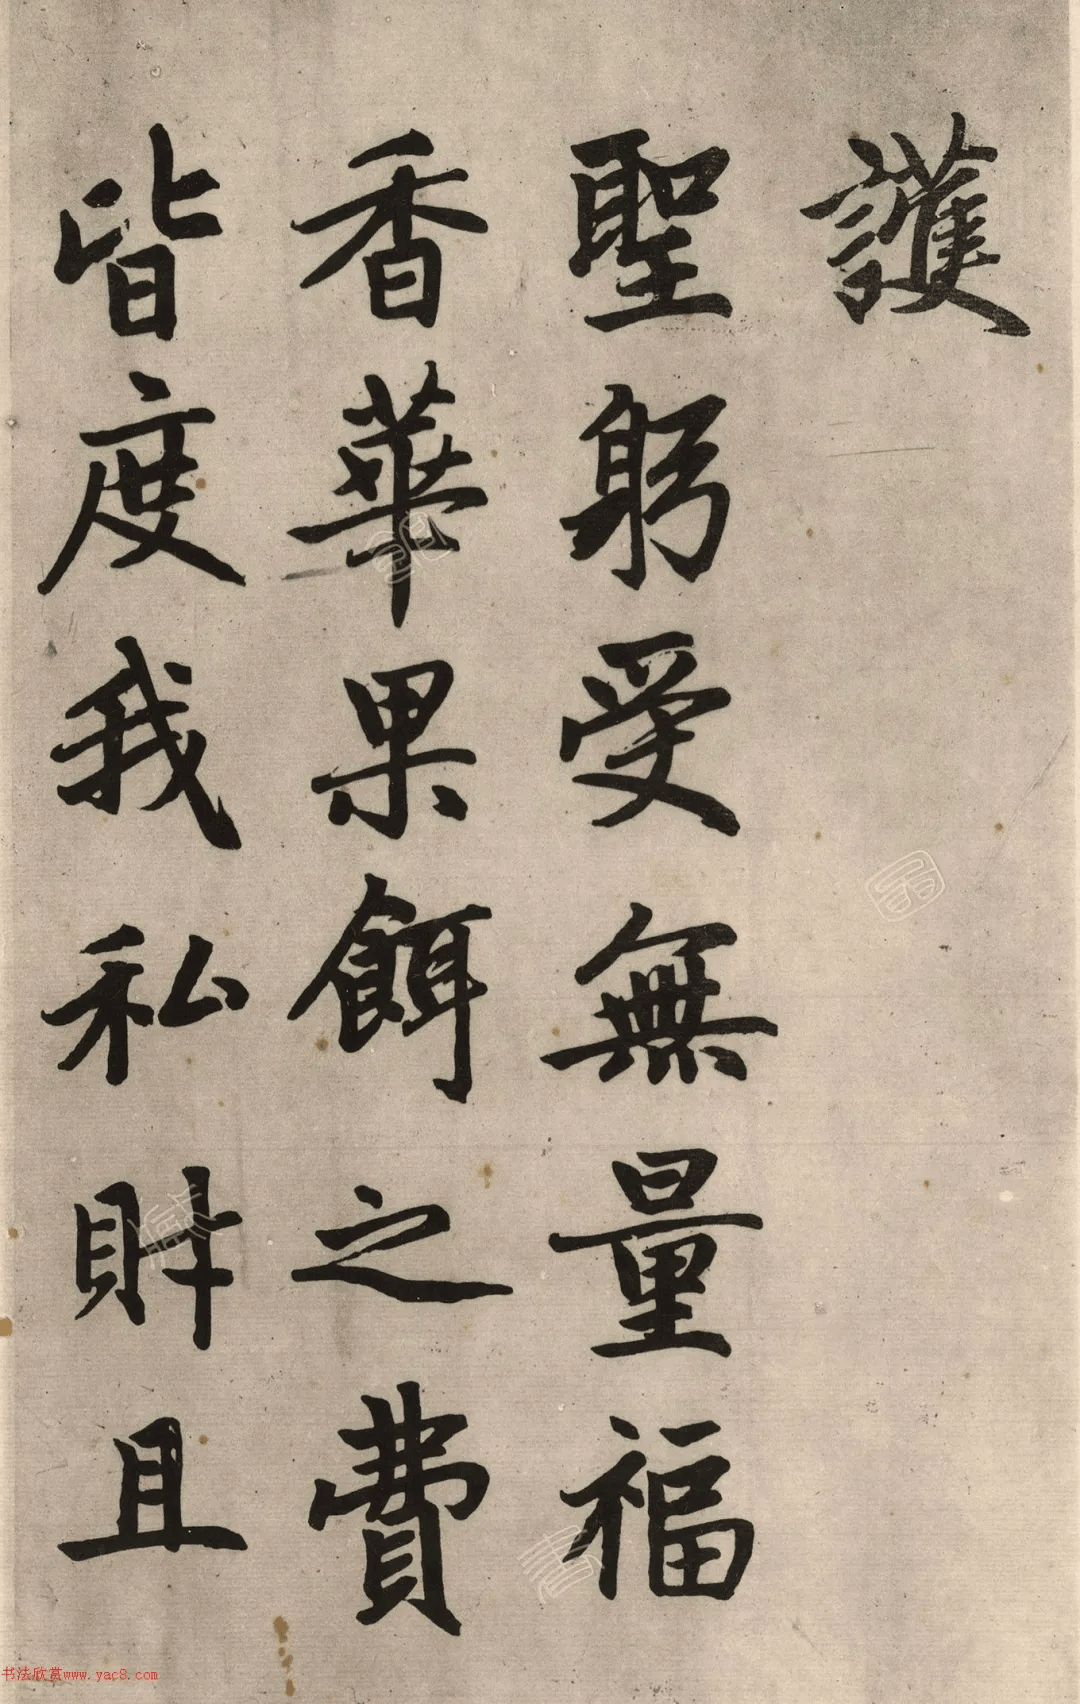 護
聖躬受無量福
香華果餌之費
皆度我私財且
书法欣赏www.yac8.com